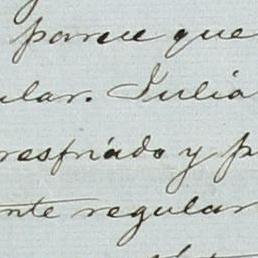 parece que
ular. Julia
resfriado y p
nte regular